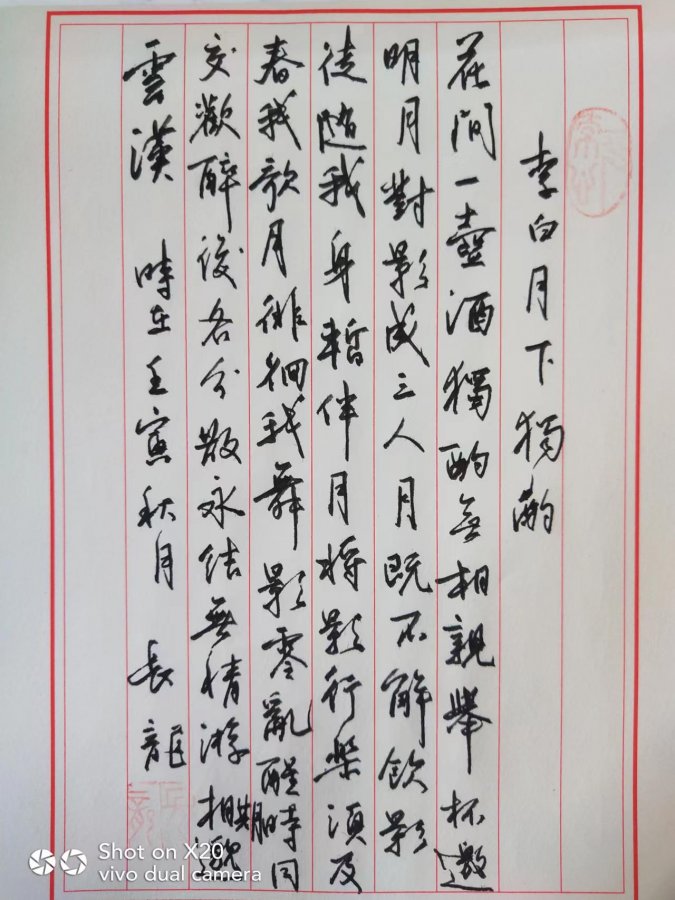 李白月下獨酌
花間一壺酒獨酌無相親舉杯邀
明月對影成三人月既不解飲影
徒隨我身暫伴月將影行樂須及
春我歌月徘徊我舞影零亂醒時同
交歡醉後各分散永結無情游相期邈
雲漢 時在壬寅秋月 長龍
Shot on X20
vivo dual camera